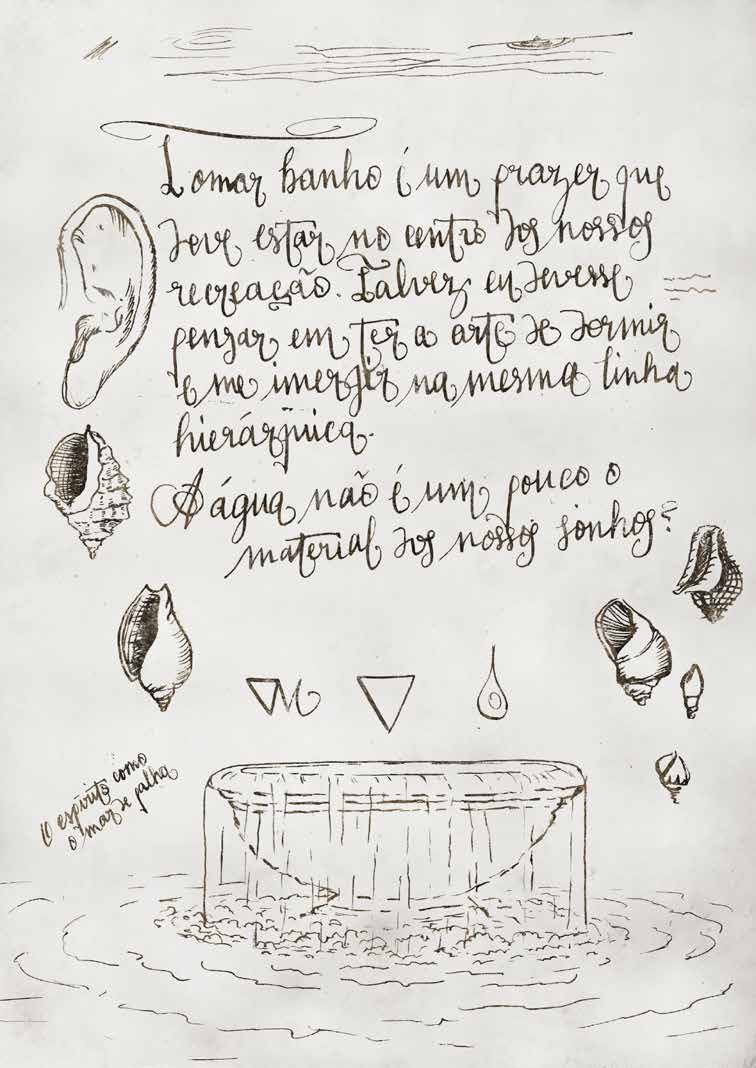 Tomar banho é um prazer que
deve estar no centro dos nossos
recreação. Talvez eu devesse
pensar em ter a arte de dormir
e me imergir na mesma linha
hierárquica.
A água não é um pouco o
material dos nossos sonhos?
O espírito como
o mar e palha